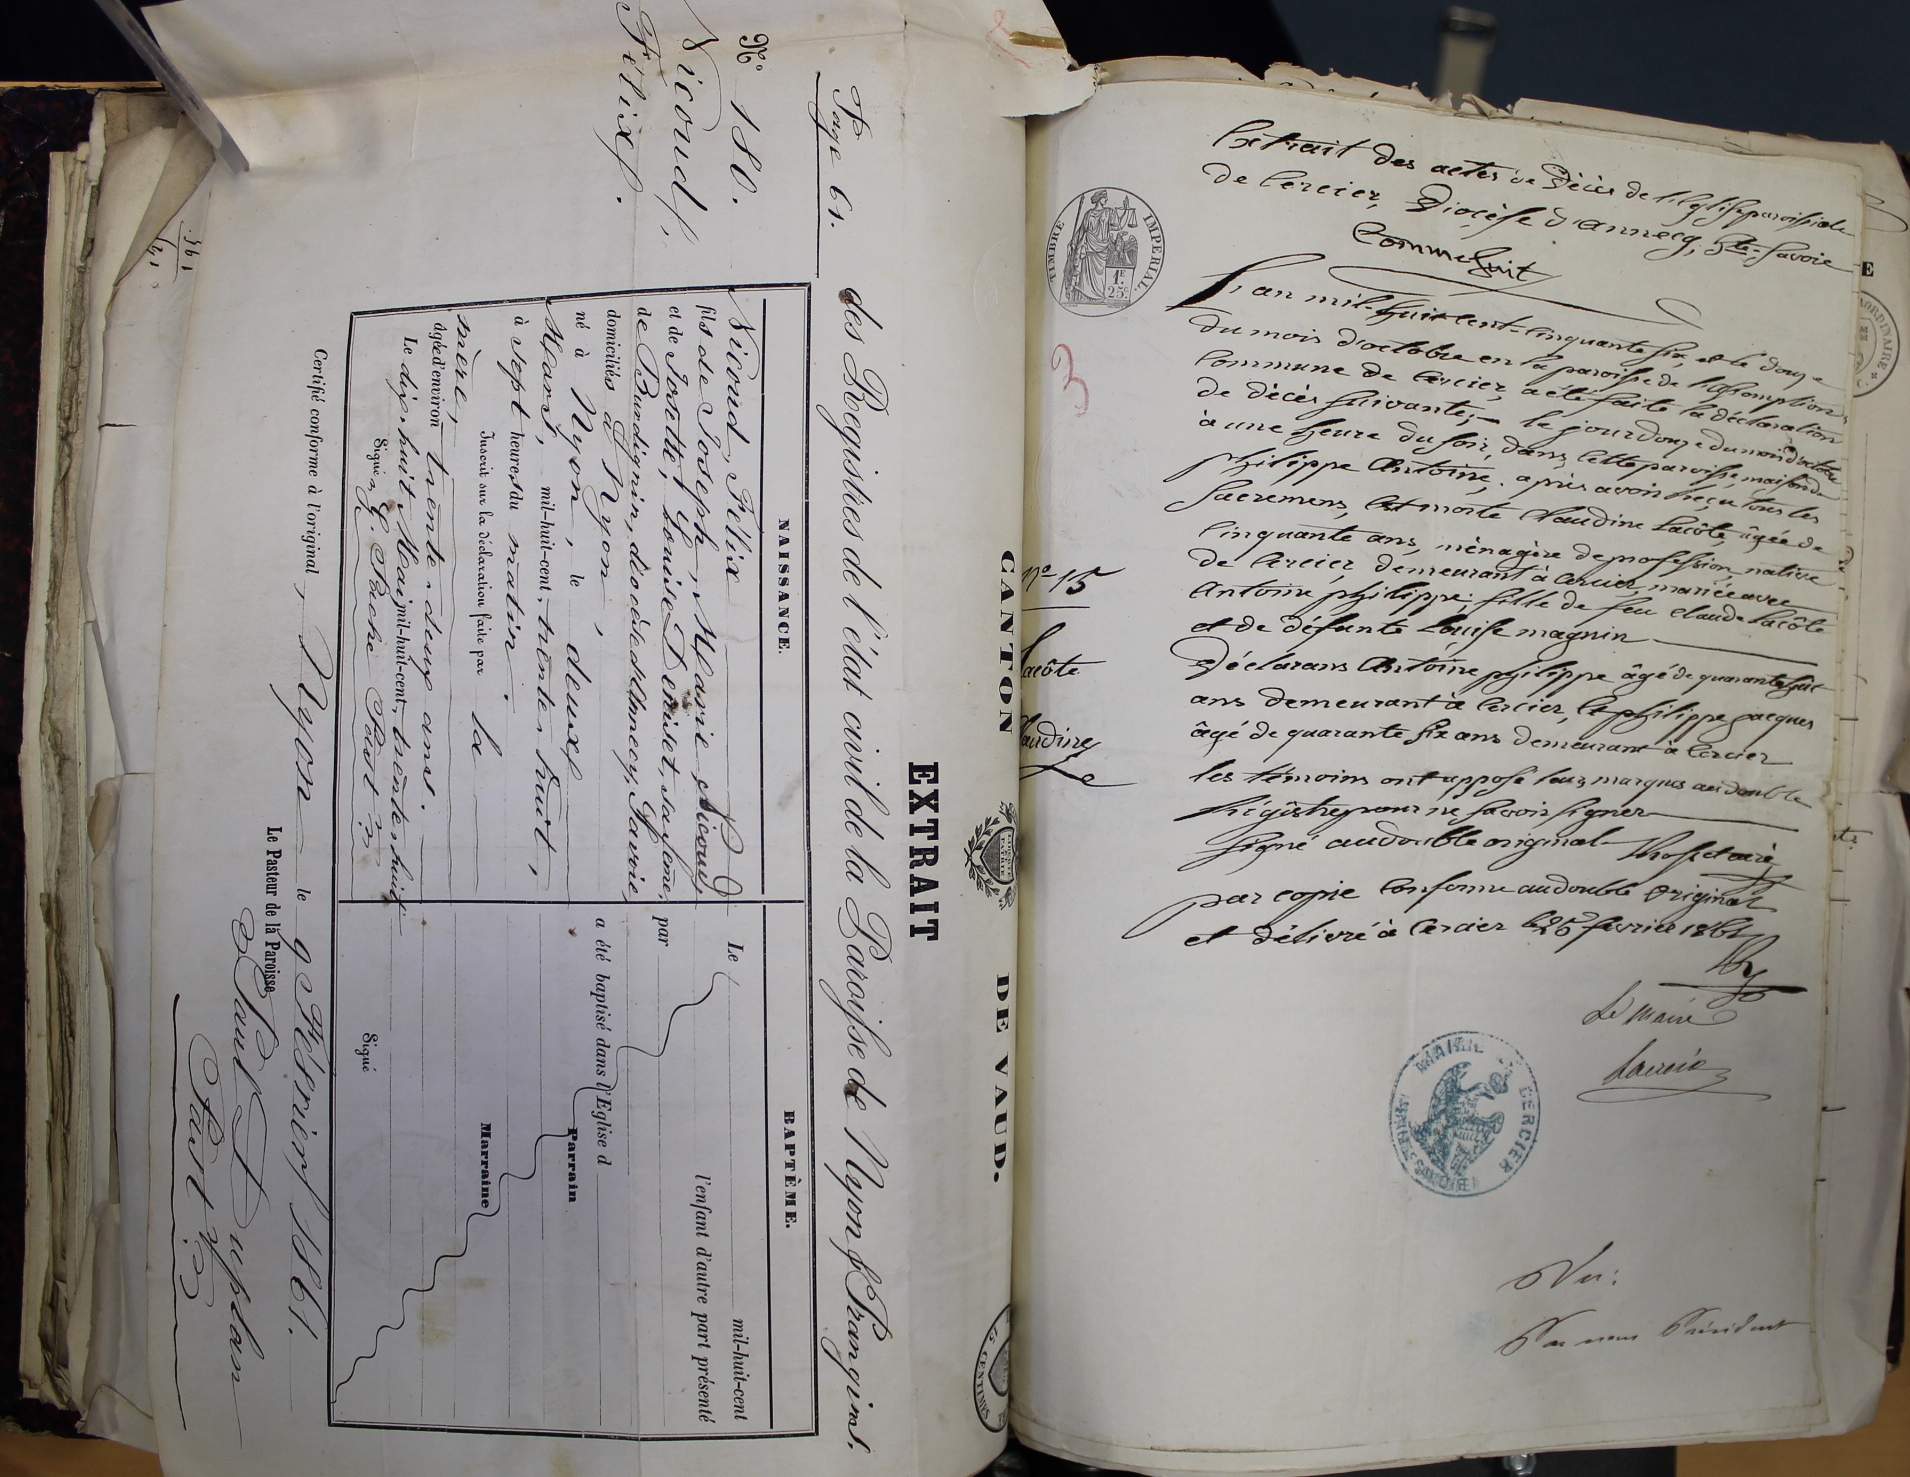 CANTON DE VAUD.
EXTRAIT
des Registres de l'état civil de la Paroisse de Nyon & Prangins.
Page 61.
N° 180.
Nicoud,
Félix.
NAISSANCE.
Nicoud, Félix
fils de Joseph, Marie Nicoud,
et de Josette, Louise Dériset, sa femme,
de Burdignin, diocèse d'Annecy, Savoie,
domiciliés à Nyon,
né à Nyon, le deux
Mars, mil-huit-cent-trente-huit,
à sept heures du matin.
Inscrit sur la déclaration faite par la
mère,
âgée d'environ trente-deux ans.
Le dix-huit Mai mil-huit-cent-trente-huit
Signé
BAPTÊME.
Le mil-huit-cent
l'enfant d'autre part présenté
par
a été baptisé dans l'Eglise d
Parrain
Marraine
Signé
Certifié conforme à l'original, Nyon le 9 Février 1861.
Le Pasteur de la Paroisse
Past.
Extrait des actes de Décès de l'Eglise paroissiale
de Cercier, Diocèse d'annecy, hte. Savoie
Comme suit
TIMBRE IMPERIAL
1F.
25c.
L'an mil-huit cent-cinquante six, et le douze
du mois d'octobre en la paroisse de l'assomption
Commune de Cercier, a été faite la déclaration
de décès suivante;- le jour douze du mois d'octobre
à une heure du soir, dans cette paroisse maison de
philippe Antoine, après avoir reçu tous les
Sacremens, est morte Claudine Lacôte, âgée de
Cinquante ans, ménagère de profession, native
de Cercier, demeurant à Cercier, mariée avec
Antoine philippe, fille de feu Claude Lacôte
et de défunte Louise magnin
N° 15
Lacôte
Claudine
Déclarans Antoine philippe âgé de quarante huit
ans demeurant à Cercier, et philippe jacques
âgé de quarante six ans demeurant à Cercier
les témoins ont apposé leurs marques au double
Régistre pour ne savoir signer
Signé au double original
par copie Conforme au double Original
et délivré à Cercier le 25 fevrier 1861
Le maire
MAIRIE DE CERCIER
Vu:
Par nous Président